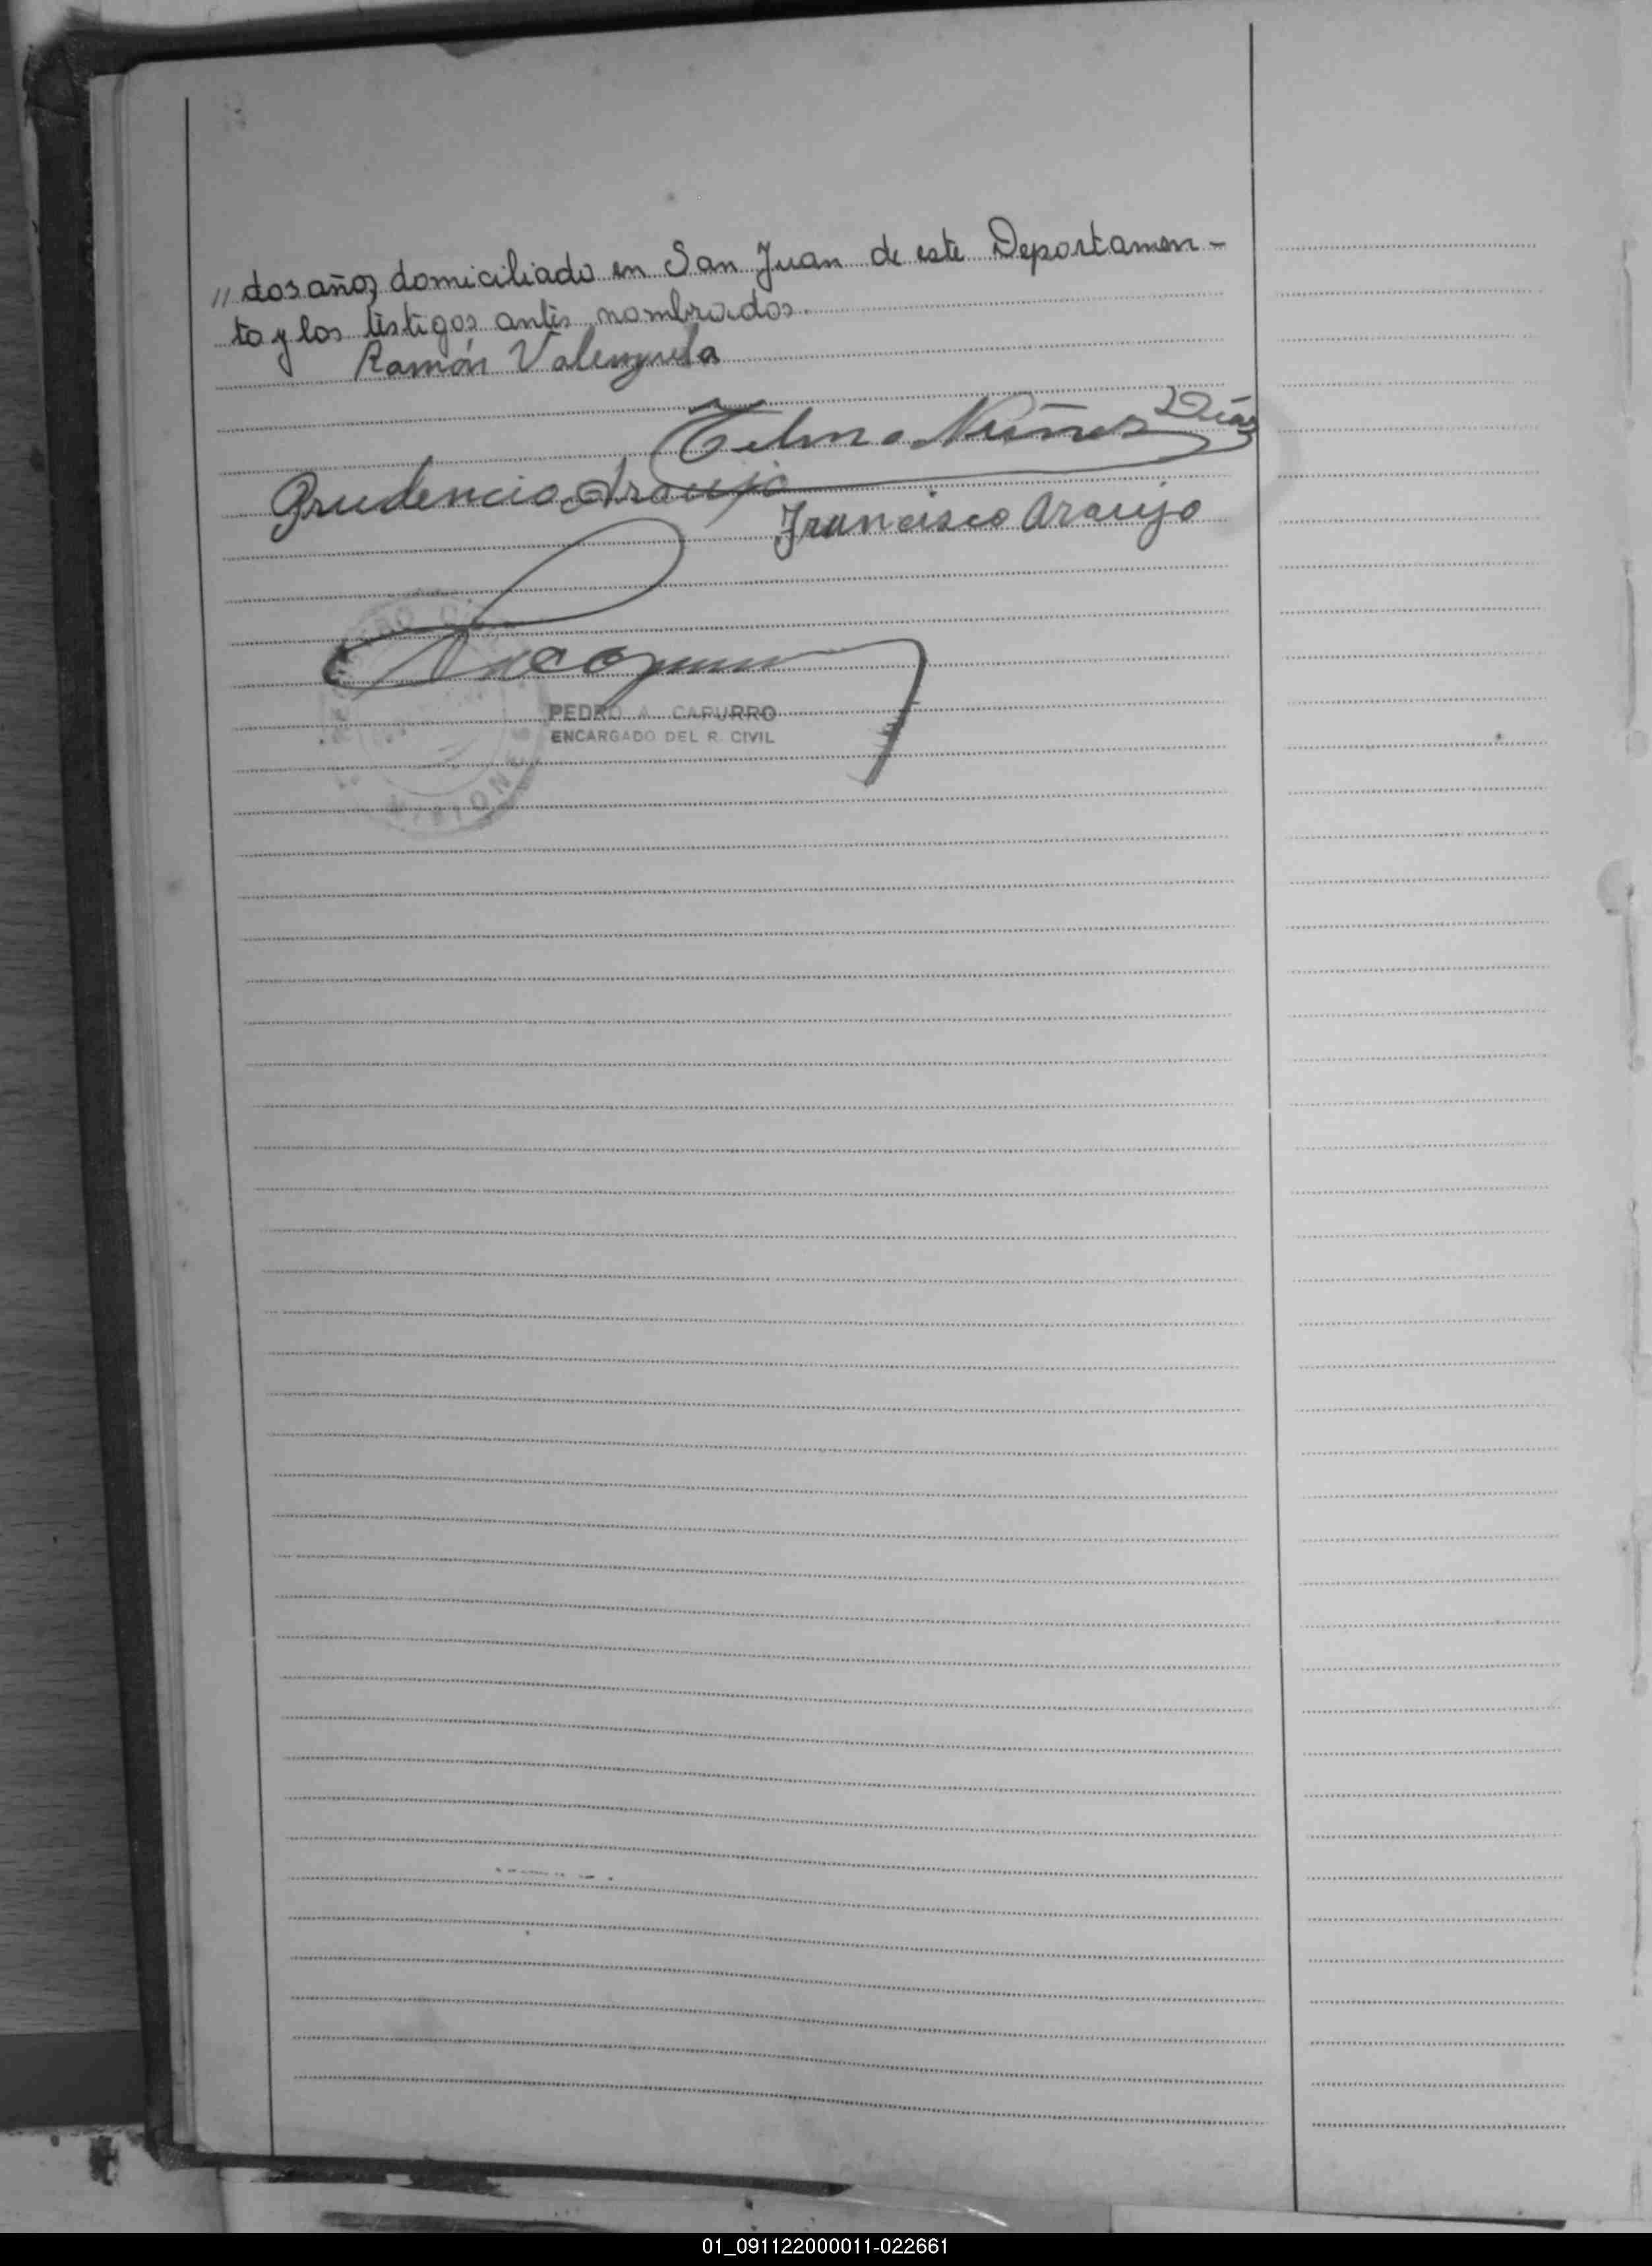 „ dos años, domiciliado en San Juan de este Departamen-
to y los testigos antes nombrados.
Ramón Valenzuela
Telmo Núñez Díaz
Prudencio Araujo
Francisco Araujo
PEDRO A. CAPURRO
ENCARGADO DEL R. CIVIL
MISIONES
01_091122000011-022661